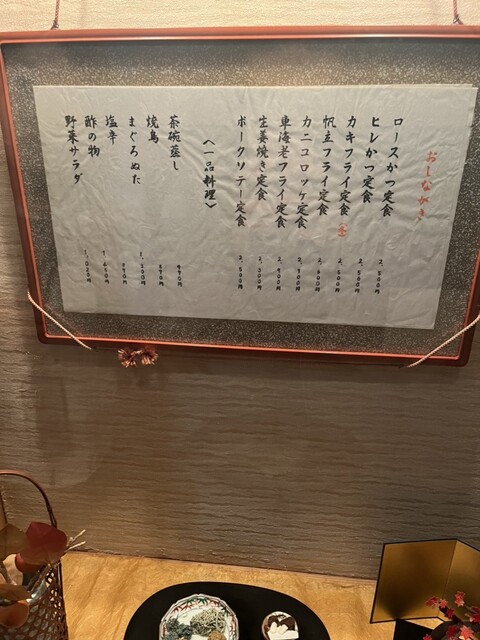 おしながき
ロースかつ定食 2,500円
ヒレかつ定食 2,500円
カキフライ定食
帆立フライ定食
カニコロッケ定食 2,900円
車海老フライ定食 2,900円
生姜焼き定食 2,300円
ポークソテー定食 2,500円
〈一品料理〉
茶碗蒸し
焼鳥
まぐろぬた 1,300円
塩辛
酢の物 1,650円
野菜サラダ